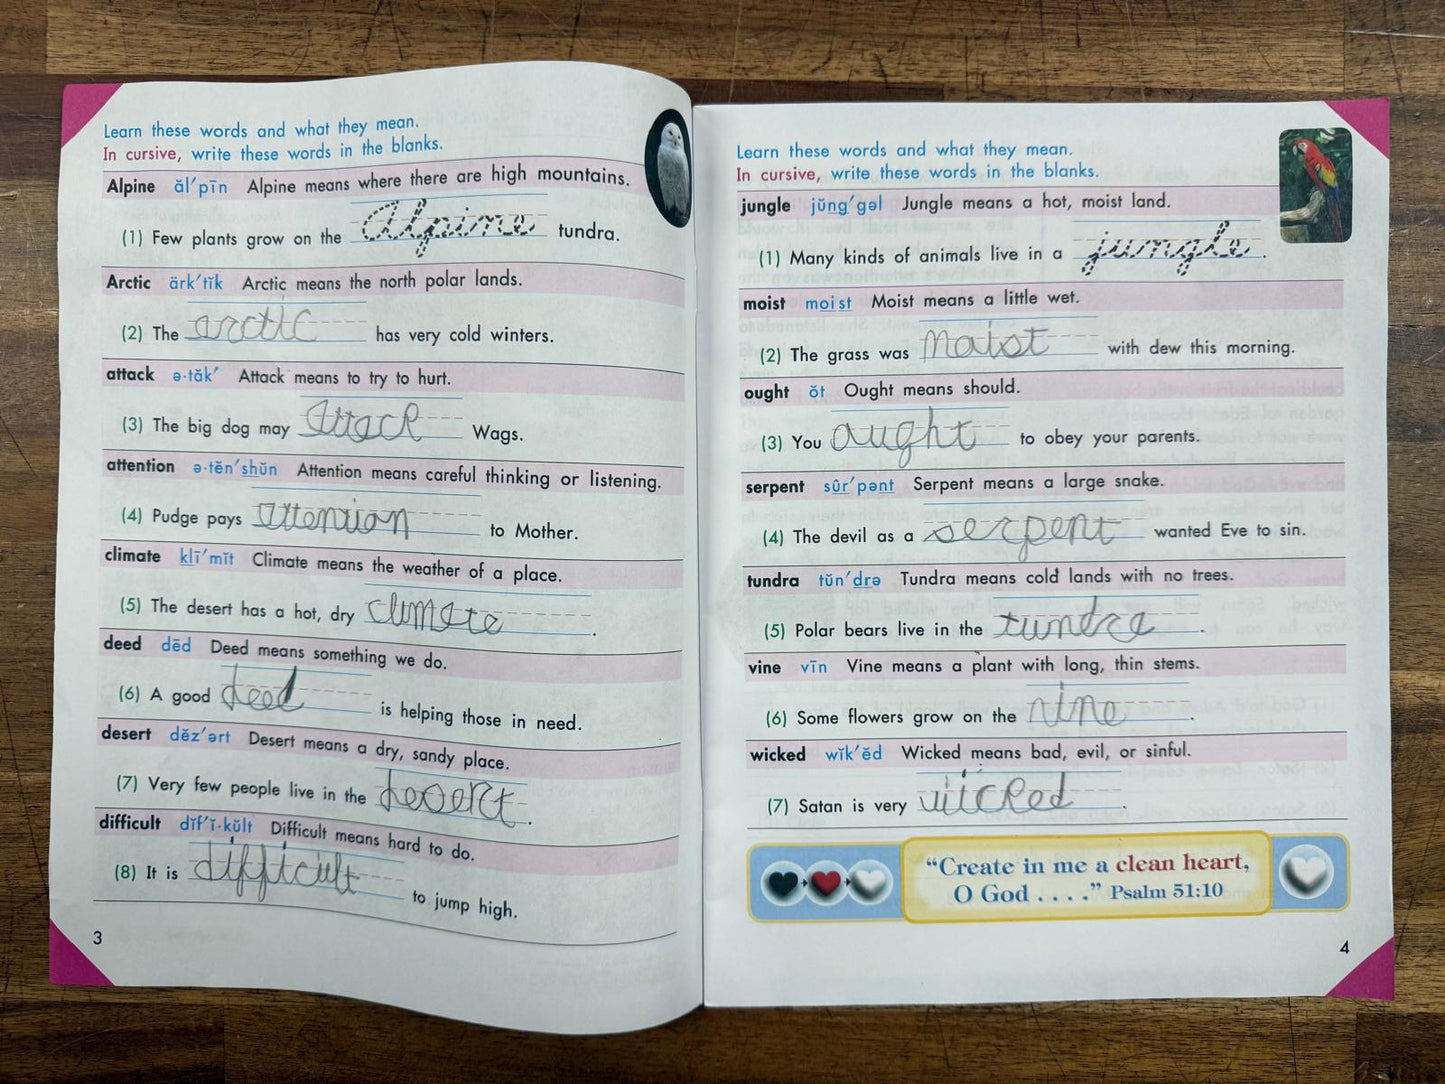 Learn these words and what they mean.
In cursive, write these words in the blanks.
Alpine ăl′pīn Alpine means where there are high mountains.
(1) Few plants grow on the Alpine tundra.
Arctic ärk′tĭk Arctic means the north polar lands.
(2) The arctic has very cold winters.
attack ə·tăk′ Attack means to try to hurt.
(3) The big dog may attack Wags.
attention ə·tĕn′shŭn Attention means careful thinking or listening.
(4) Pudge pays attention to Mother.
climate klī′mĭt Climate means the weather of a place.
(5) The desert has a hot, dry climate.
deed dēd Deed means something we do.
(6) A good deed is helping those in need.
desert dĕz′ərt Desert means a dry, sandy place.
(7) Very few people live in the desert.
difficult dĭf′ĭ·kŭlt Difficult means hard to do.
(8) It is difficult to jump high.
3
Learn these words and what they mean.
In cursive, write these words in the blanks.
jungle jŭng′gəl Jungle means a hot, moist land.
(1) Many kinds of animals live in a jungle.
moist moist Moist means a little wet.
(2) The grass was moist with dew this morning.
ought ŏt Ought means should.
(3) You ought to obey your parents.
serpent sûr′pənt Serpent means a large snake.
(4) The devil as a serpent wanted Eve to sin.
tundra tŭn′drə Tundra means cold lands with no trees.
(5) Polar bears live in the tundra.
vine vīn Vine means a plant with long, thin stems.
(6) Some flowers grow on the vine.
wicked wĭk′ĕd Wicked means bad, evil, or sinful.
(7) Satan is very wicked.
“Create in me a clean heart,
O God . . . .” Psalm 51:10
4